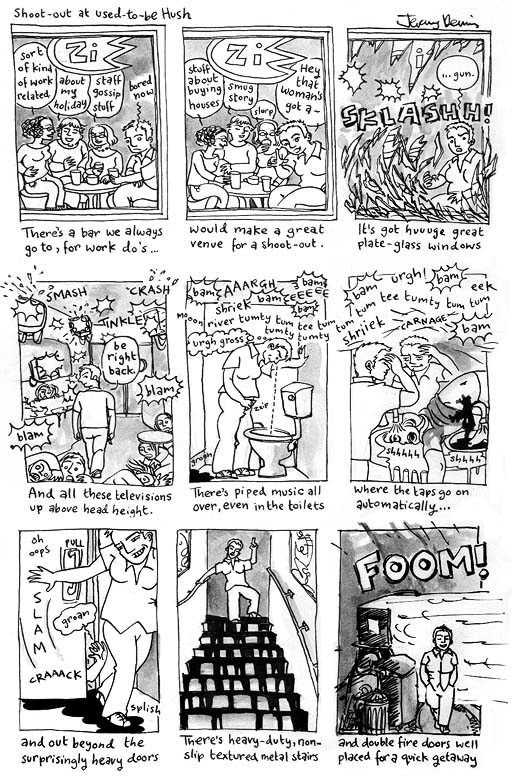 Shoot-out at used-to-be Hush
Jeremy Dennis
Zi
sort
of kind
of work
related
about
my
holiday
staff
gossip
stuff
bored
now
There's a bar we always
go to, for work do's...
Zi
stuff
about
buying
houses
smug
story
slurp
Hey
that
woman's
got a -
would make a great
venue for a shoot-out.
...gun.
SKLASHH!
It's got huuuge great
plate-glass windows
SMASH
CRASH
TINKLE
be
right
back.
blam
blam
And all these televisions
up above head height.
bam
AAARGH
bam
shriek
bam
EEEEEE
bam
mooon river tumty tum tee tum tum
tumty tumty
urgh gross
zzip
groan
There's piped music all
over, even in the toilets
bam
urgh!
bam
eek
tum tee tumty tum tum
tum
shriiek
CARNAGE
bam
shhhhh
shhhh
where the taps go on
automatically...
oh
oops
PULL
SLAM
groan
CRAAACK
splish
and out beyond the
surprisingly heavy doors
There's heavy-duty, non-
slip textured metal stairs
FOOM!
and double fire doors well
placed for a quick getaway